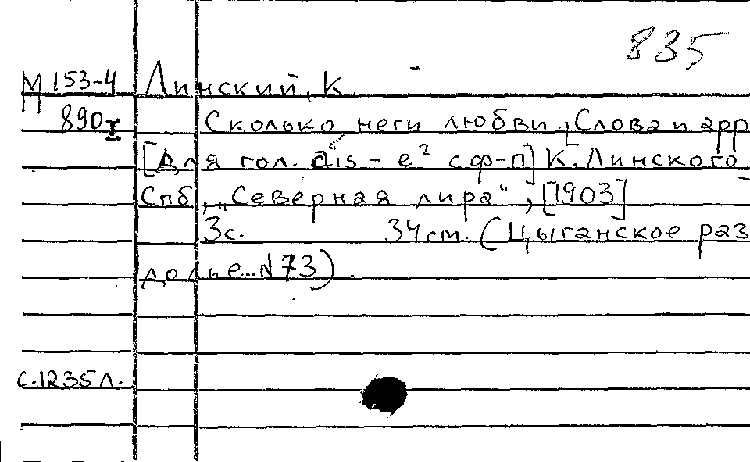 835
М 153-4 Линский, К
890 I Сколько неги любви, Слова и арр
[Для гол. dis - e² с ф-п] К. Линского
Спб, „Северная лира“, [1903]
3с. 34см. (Цыганское раз
долье... N 73).
с.1235л.